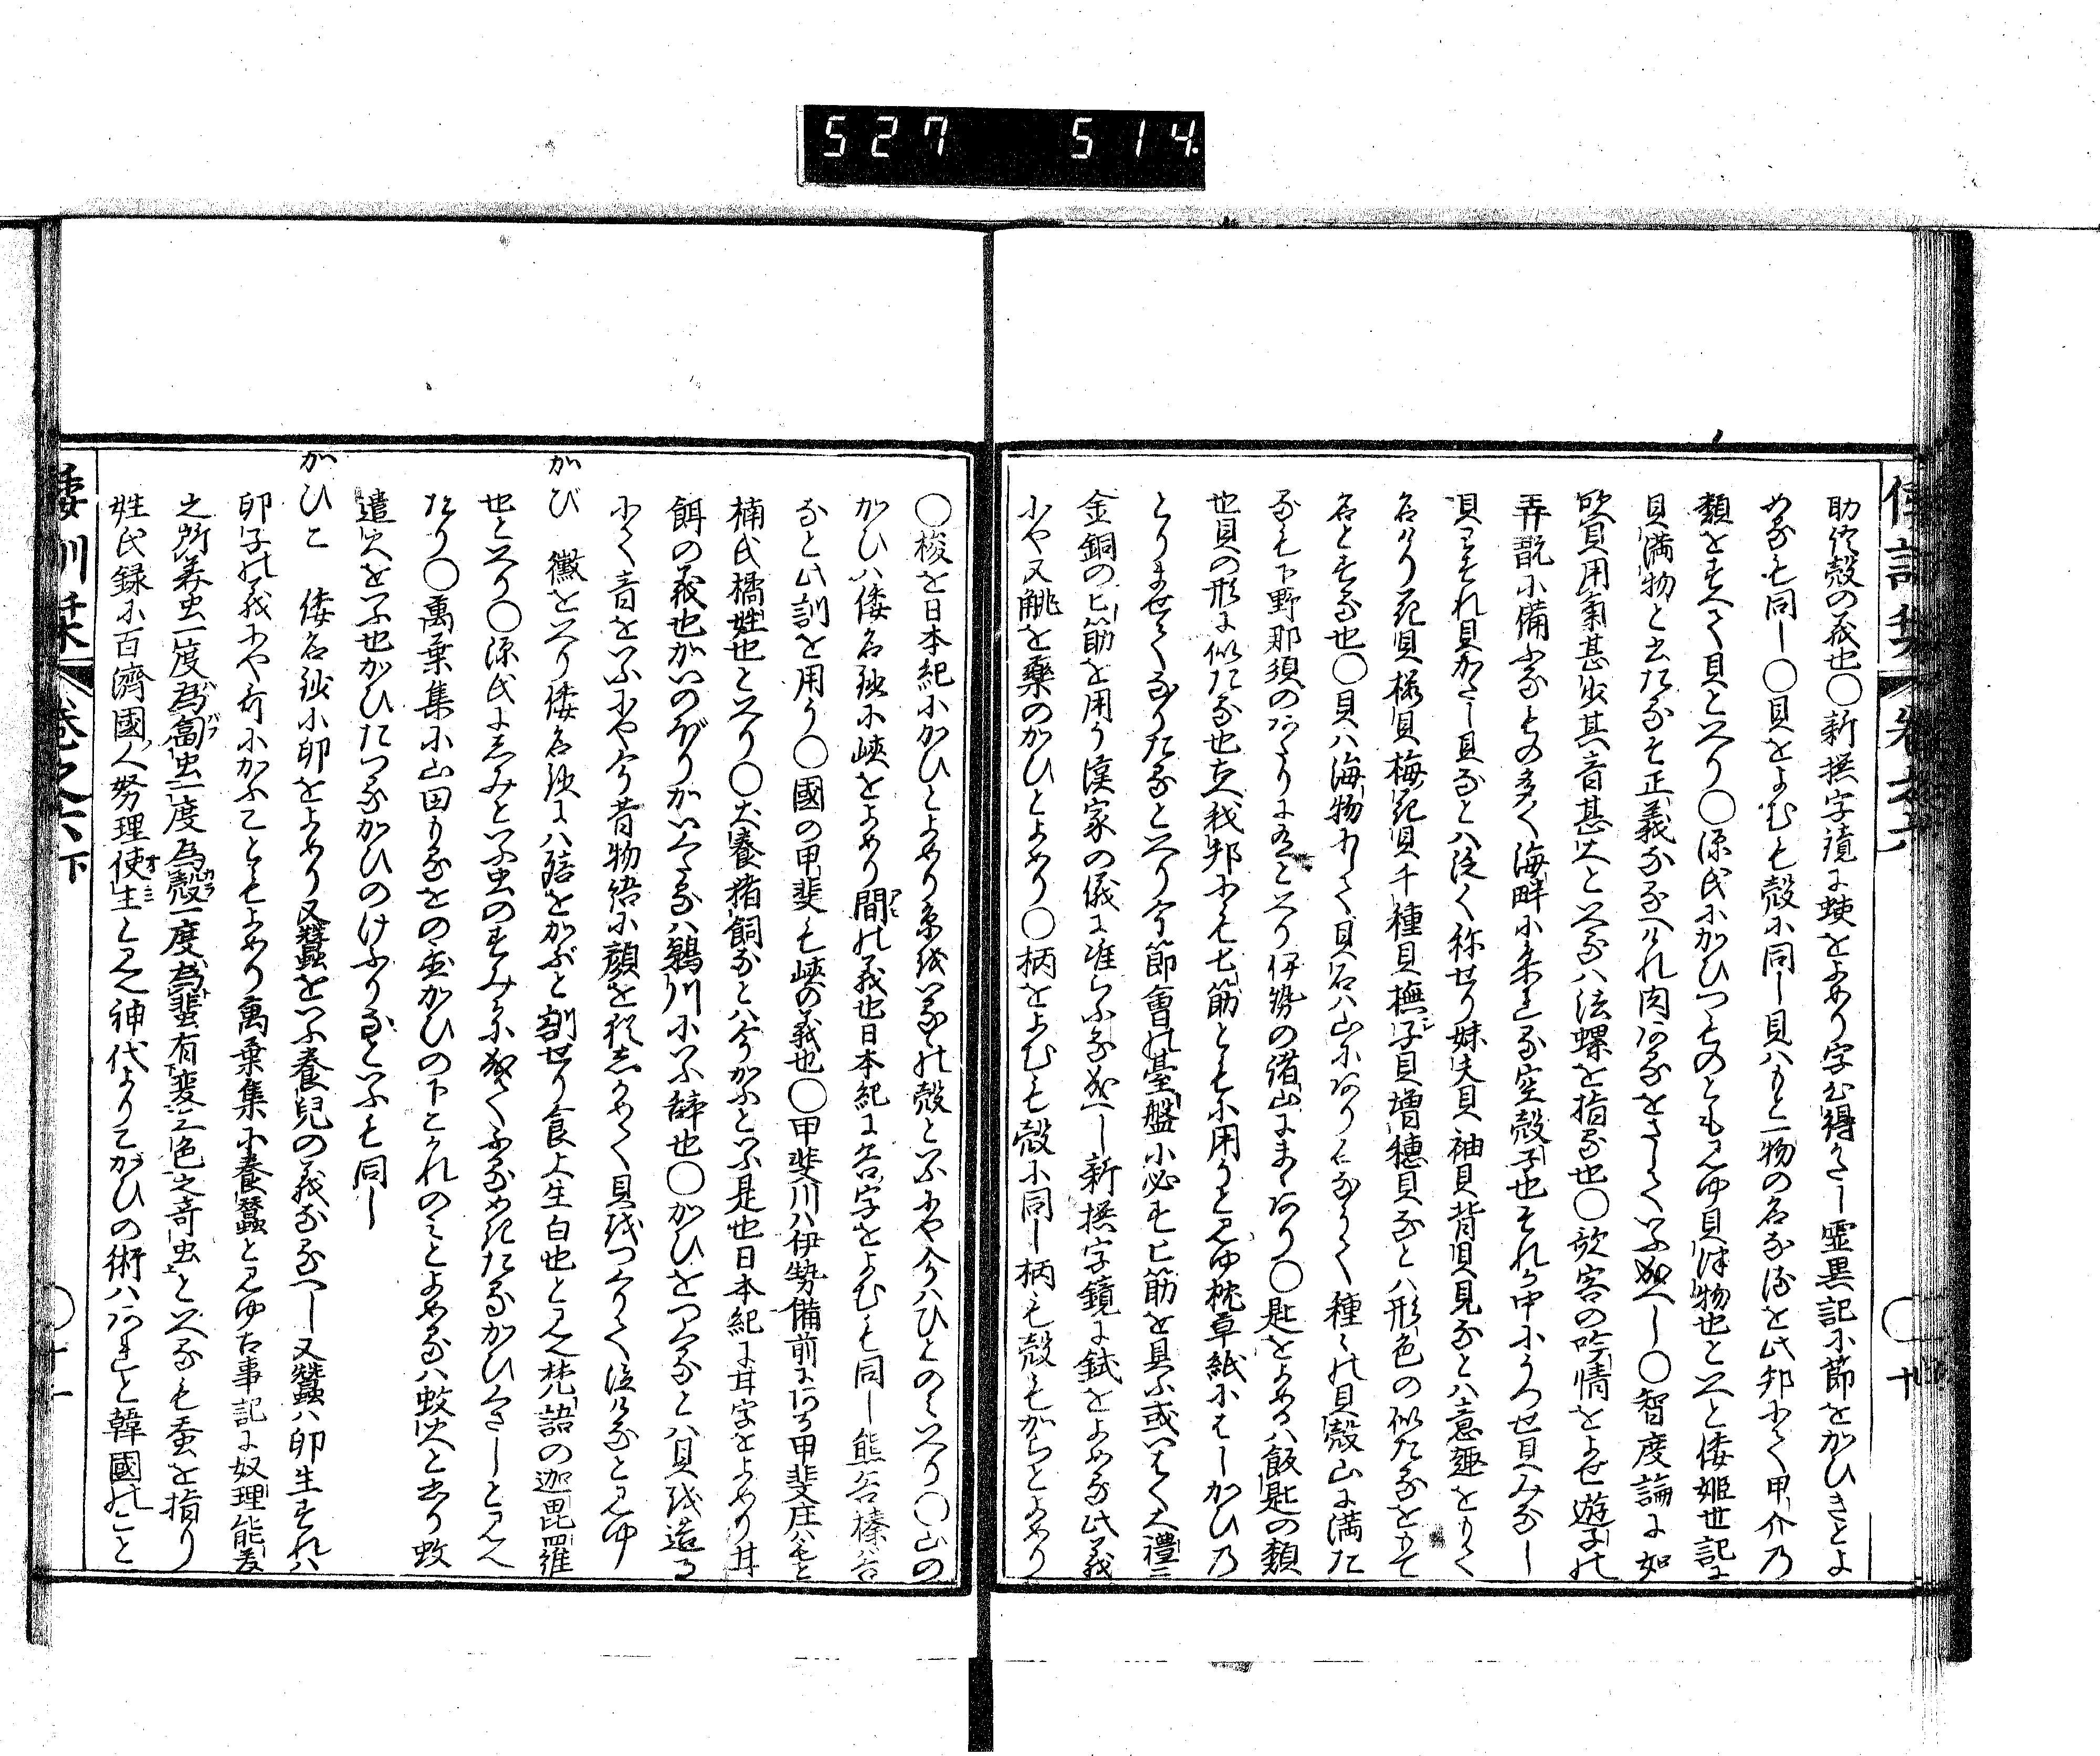 527 514
倭訓栞 卷之六
助修殼の義也〇新撰字鏡に蛺をよめり字書得かたし霊異記に節をかひきとよ
める も同し〇貝をよむも殼に同し貝ハもと一物の名なるを此邦にて甲介乃
類をすへて貝といへり〇源氏にかひつものとも見ゆ貝津物也といへと倭姫世記に
貝満物と書たるそ正義なるへけれ肉あるをさしていふ成へし〇智度論に如
吹貝用氣甚少其音甚大といへるハ法螺を指る也〇歌客の吟情をよせ遊子の
弄翫に備ふるもの多く海畔に来れる空殼子也それか中にうつせ貝みなし
貝わすれ貝かたし貝なとハ泛く称せり妹夫貝袖貝背貝見なとハ意趣をもて
名けり花貝櫻貝梅花貝千種貝撫子貝増穂貝なとハ形色の似たるをもて
名とする也〇貝ハ海物にして貝石ハ山にありしなるへく種々の貝殼山に満た
るも下野那須のあたりに有といへり伊勢の諸山にもまゝあり〇匙をよめるハ飯匙の類
也貝の形に似たる也古へ我邦にも匕筋ともに用うと見ゆ枕草紙にもはしかひ乃
とりませてなりたるといへり今節會の臺盤に必す匕筋を具ふ或ハはく大禮に
金銅の匕筋を用う漢家の儀に准らふる成へし新撰字鏡に鉽をよめる此義
にや又觘を藥のかひとよめり〇柄をよむも殼に同し柄も殼もからとよめり
〇梭を日本紀にかひとよめり糸をいるゝの殼といふにや今ハひとのミいへり〇山の
かひハ倭名鈔に峽をよめり間の義也日本紀に谷字をよむも同し熊谷榛谷
なと此訓を用う〇國の甲斐も峽の義也〇甲斐川ハ伊勢備前にあり甲斐庄ハもと
楠氏橘姓也といへり〇犬養猪飼なとハ今かふといふ是也日本紀に丼字をよめり丼
餌の義也かいのほりかいくたるハ鵜川にいふ辞也〇かひをつくるとハ貝を造る
にて音をいふにや今昔物語に顔を□しかめて貝をつくりて泣けるとみゆ
かび 黴をいへり倭名鈔にハ䤃をかぶと訓せり食上生白也と見え梵語の迦毘羅
也といへり〇源氏にしみといふ虫のすみかに成てふるめきたるかひくさしと見え
たり〇萬葉集に山田もるをの置かひの下こかれのミとよめるハ蚊火と書り蚊
遣火をいふ也かひたつるかひのけふりなといふも同し
がひこ 倭名鈔に卵をよめり又蠶をいふ養兒の義なるへし又蠶ハ卵生すれハ
卵子の義にや斤にかふこともよめり萬葉集に養蠶と見ゆ古事記に奴理能美
之所養虫一度為匐虫一度為殼一度為蜚有変三色之奇虫といへるも蚕を指り
姓氏録に百濟國人努理使主と見え神代よりこがひの術ハあれと韓國のこと
倭訓栞 卷之六下 〇十一
〇十